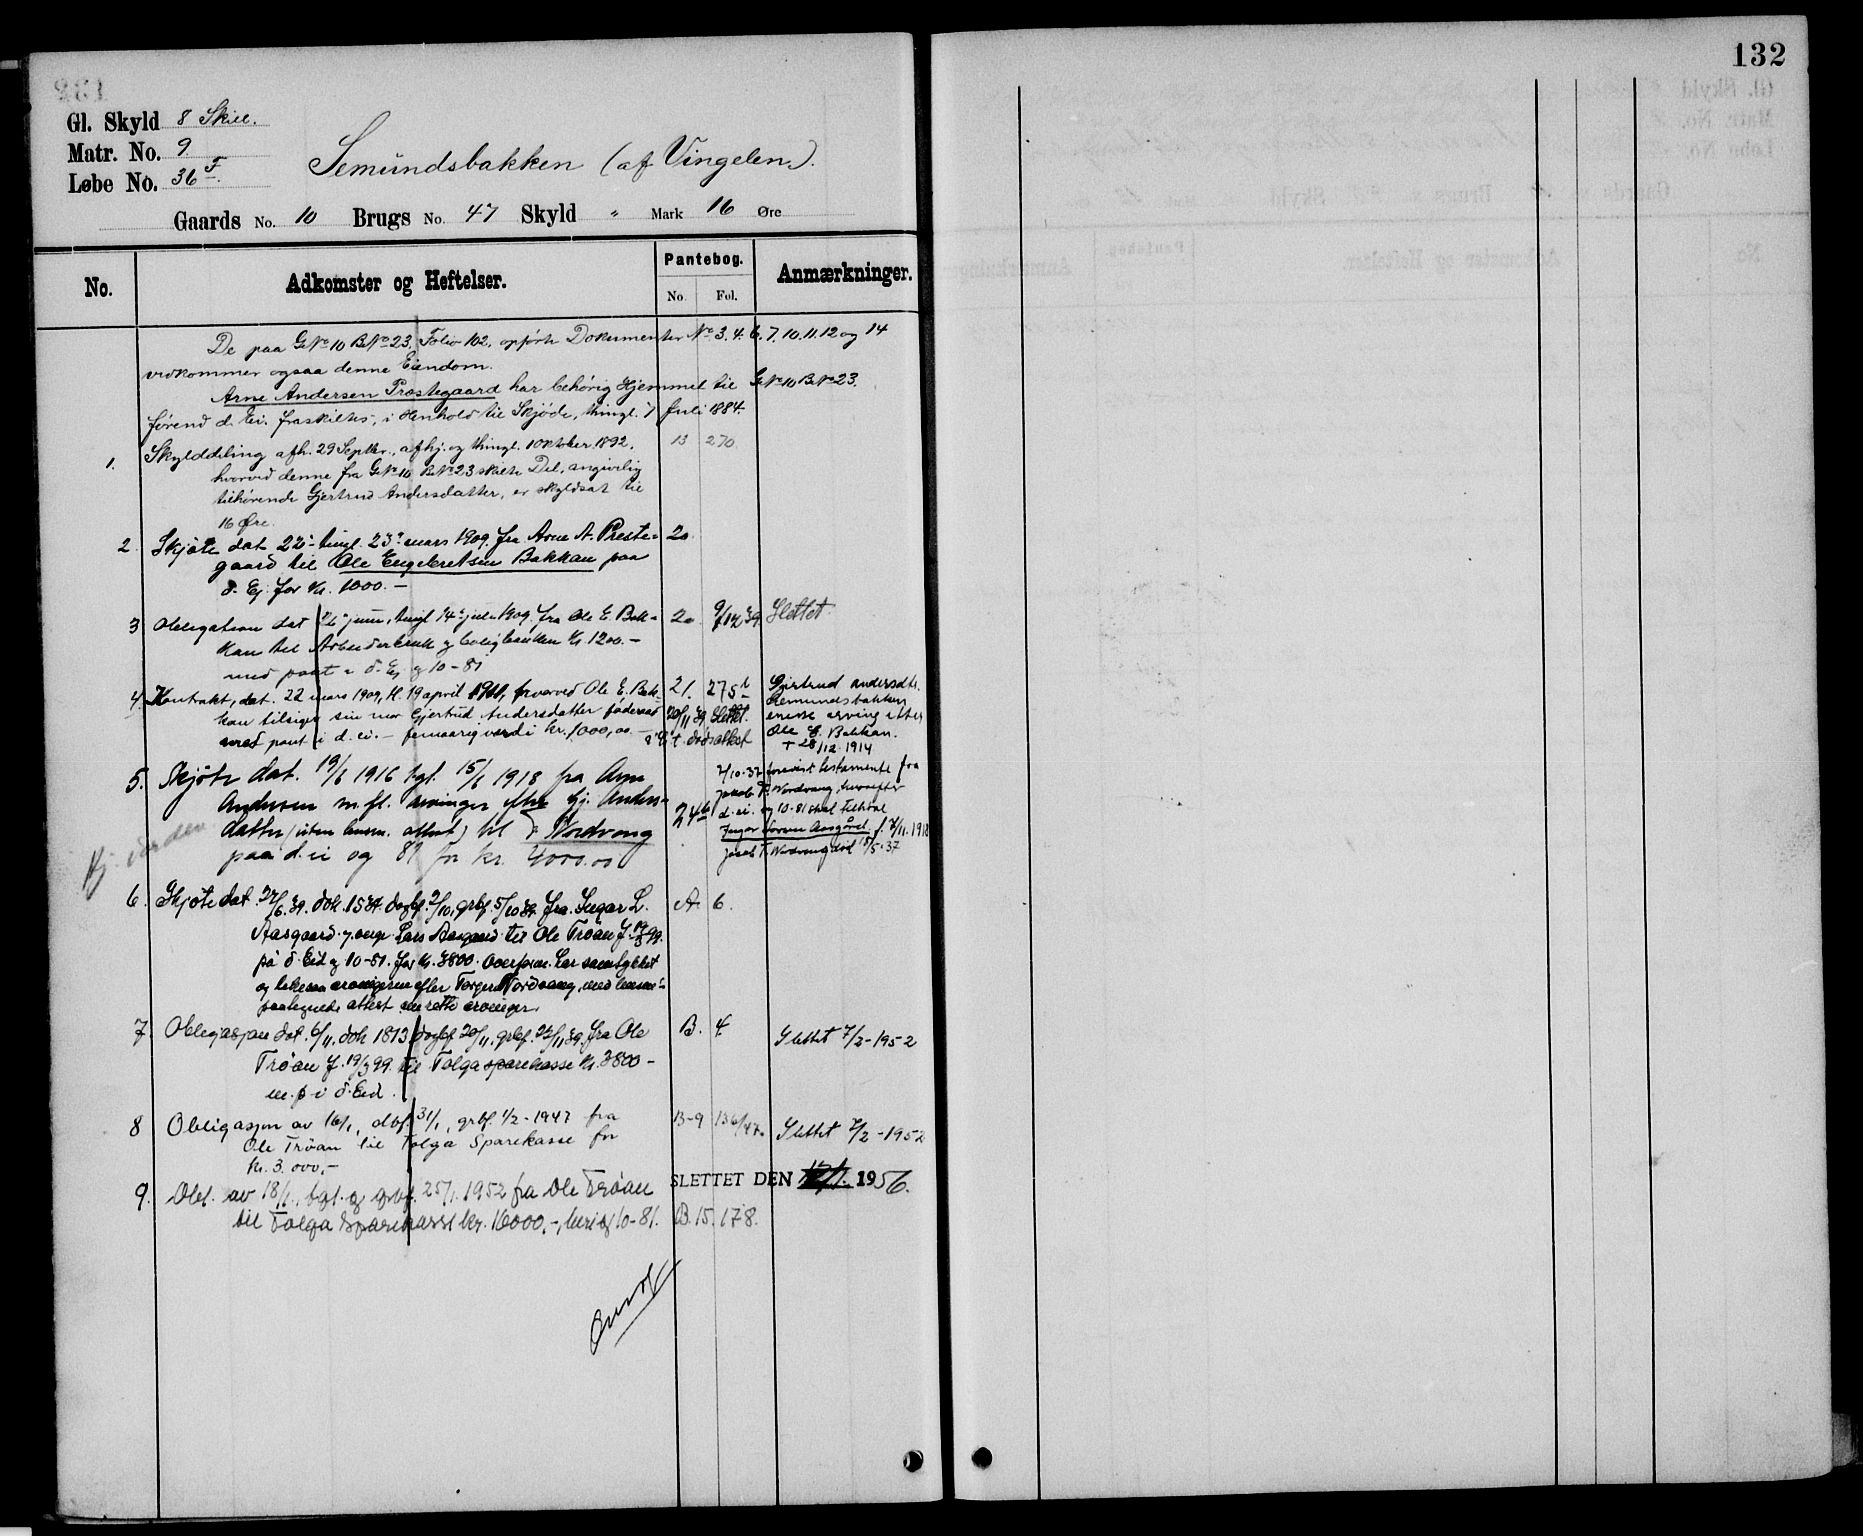 132
Gl. Skyld 8 Skill.
Matr. No. 9
Løbe No. 36 F.
Semundsbakken (af Vingelen.).
Gaards No. 10 Brugs No. 47 Skyld " Mark 16 Øre
No. Adkomster og Heftelser. Pantebog. Anmærkninger.
No. Fol.
De paa GNo 10 BNo 23, Folio 102, opførte Dokumenter No 3. 4. 6. 7. 10. 11. 12 og 14
vedkommer ogsaa denne Eiendom.
Arne Andersen Præstegaard har behørig Hjemmel til GNo 10 BNo 23.
førend d. Ei. fraskiltes, i Henhold til Skjøde, thingl. 7 Juli 1884.
1. Skylddeling afh. 29 Septbr., afhj. og thingl. 1 Oktober 1892, 13 270
hvorved denne fra GNo 10 BNo 23 skilte Del, angivelig
tilhørende Gjertrud Andersdatter, er skyldsat til
16 Øre.
2 Skjøte dat 22 tingl. 23 mars 1909 fra Arne A. Preste- 20
gaard til Ole Engebretsen Bakkan paa
d. Ej. for Kr. 1000.—
3 Obligation dat 26 juni, tingl 14 juli 1909 fra Ole E. Bak- 20 9/12 39 Slettet.
kan til Arbeiderbruk og boligbanken Kr. 1200.—
med pant i d. Ej og 10-81
4. Kontrakt, dat. 22 mars 1909, tl. 19 april 1911, hvorved Ole E. Bak- 21. 275
kan tilsiger sin mor Gjertrud Andersdatter føderaad 20/11 39 Slettet.
med pant i d. ei. — femaarig verdi kr. 1000,00 —
Gjertrud andersdtr.
Semundsbakken
eneste arving etter
Ole E. Bakkan.
+ 28/12 1914
5. Skjøte dat. 19/6 1916 tgl. 15/6 1918 fra Arne
Andersen m. fl. arvinger efter Gj. Anders-
datter (uten lensm. attest) til T. Nordvang
paa d. ei og 81 for kr. 4000.00
Hj. verden
24
7/10-37 forevist testamente fra
Jakob T. Nordvang, hvorefter
d. ei. og 10-81 skal tilhøre
Ingar Aasgård f. 7/11. 1918
Jakob T. Nordvang død 15/5-37
6. Skjøte dat. 27/6. 39. dok. 1534 dagbf. 2/10, grbf. 5/10 39 fra Ingar L. A. 6.
Aasgaard og verge Lars Aasgaard til Ole Trøan f. 19/3 99.
på d. Eid og 10-81. for kr. 3800. Overform. har samtykket
og likesaa arvingerne efter Torger Nordvang, med lensm.
paategnede attest om rette arvinger.
7 Obligasjon dat. 6/11, dok 1813 dagbf 20/11, grbf. 22/11 39, fra Ole B. 4. Slettet 7/2-1952
Trøan f. 19/3 99. til Tolga sparekasse Kr. 3800 —
m. p. i d. Eid.
8 Obligasjon av 16/1, dbf. 31/1, grbf. 1/2-1947 fra B-9 136/47. Slettet 7/2-1952
Ole Trøan til Tolga Sparekasse for
kr. 3.000,—
SLETTET DEN 1956.
9. Obl. av 18/1, tgl. og grbf. 25/1. 1952 fra Ole Trøan
til Tolga Sparekasse kr. 16000.-, heri og 10-81. B. 15. 178.